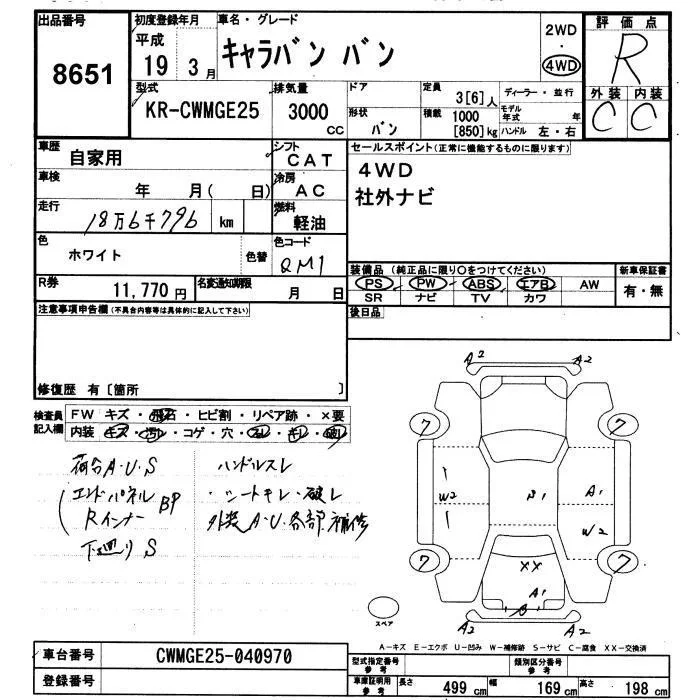 出品番号 8651
初度登録年月 平成 19 3月
車名・グレード キャラバン バン
2WD ・ 4WD
評価点 R
外装 C 内装 C
型式 KR-CWMGE25
排気量 3000 CC
ドア
形状 バン
定員 3[6]人
積載 1000 [850]kg
ディーラー・並行
モデル年式 年
ハンドル 左・右
車歴 自家用
シフト CAT
車検 年 月( 日)
冷房 AC
走行 18万6千796 km
燃料 軽油
色 ホワイト 色替
色コード QM1
R券 11,770円
名変通知期限 月 日
セールスポイント(正常に機能するものに限ります)
4WD
社外ナビ
装備品(純正品に限り〇をつけてください)
新車保証書
PS PW ABS エアB AW
有・無
SR ナビ TV カワ
後日品
注意事項申告欄(不具合内容等は具体的に記入して下さい)
修復歴 有〔箇所 〕
検査員記入欄
FW キズ・飛石・ヒビ割・リペア跡・×要
内装 キズ・汚れ・コゲ・穴・スレ・キレ・破れ
荷台A・U・S
エンドパネル BP
Rインナー
下廻りS
ハンドルスレ
・シートキレ・破レ
外装A・U・各部補修
A2 A2
7 7
W2 B1 A1
W2
7 7
XX
A1
B
A2 A2
スペア
A-キズ E-エクボ U-凹み W-補修跡 S-サビ C-腐食 XX-交換済
車台番号 CWMGE25-040970
登録番号
型式指定番号 参考
類別区分番号 参考
車庫証明用 参考 長さ 499 cm 幅 169 cm 高さ 198 cm